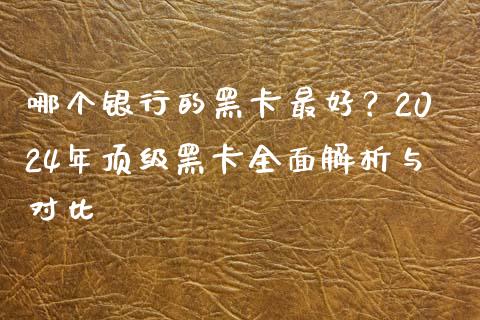 哪个银行的黑卡最好？20
24年顶级黑卡全面解析与
对比